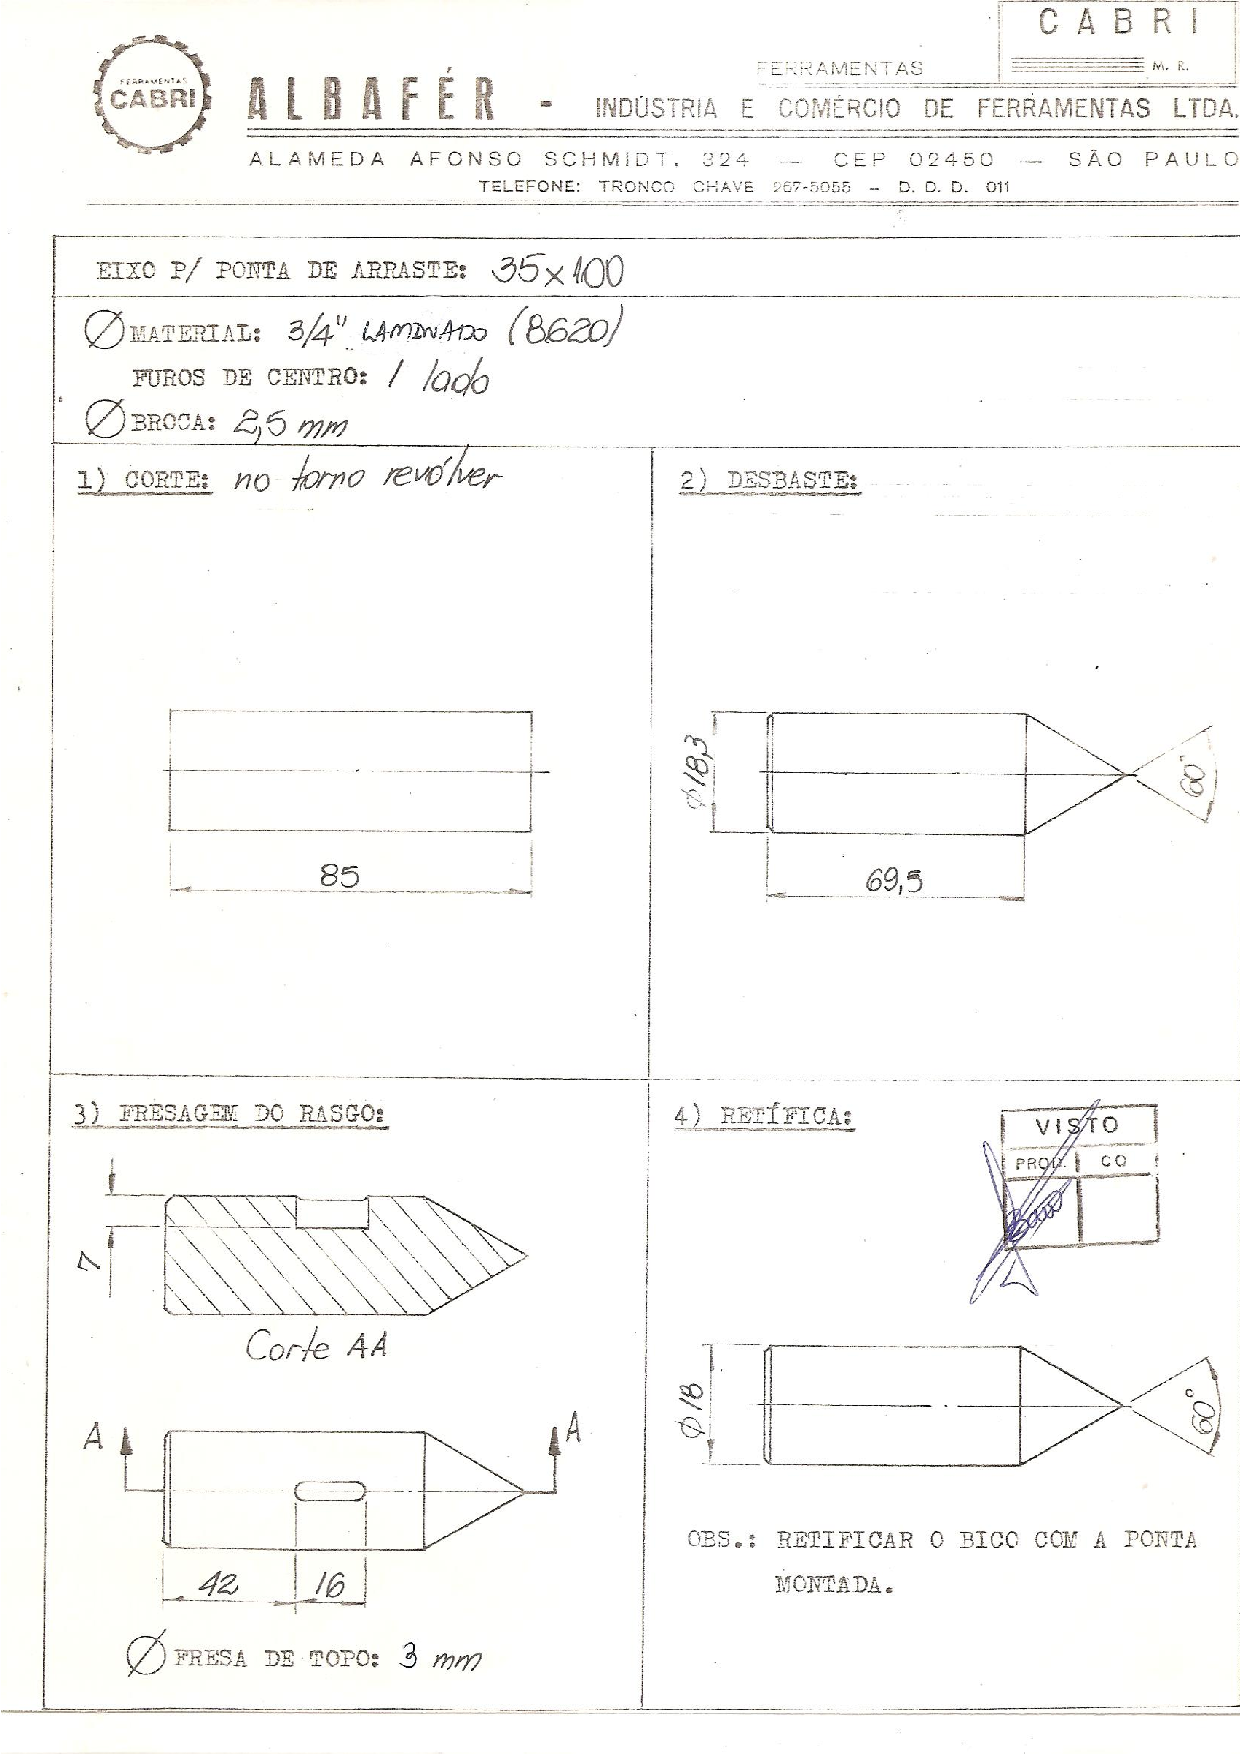 CABRI
FERRAMENTAS M. R.
FERRAMENTAS
CABRI
ALBAFÉR - INDÚSTRIA E COMÉRCIO DE FERRAMENTAS LTDA.
ALAMEDA AFONSO SCHMIDT, 324 — CEP 02450 — SÃO PAULO
TELEFONE: TRONCO CHAVE 267-5055 – D. D. D. 011
EIXO P/ PONTA DE ARRASTE: 35x100
Ø MATERIAL: 3/4" LAMINADO (8620)
FUROS DE CENTRO: 1 lado
Ø BROCA: 2,5 mm
1) CORTE: no torno revólver
85
2) DESBASTE:
φ18,3
60°
69,5
3) FRESAGEM DO RASGO:
7
Corte AA
A A
42 16
Ø FRESA DE TOPO: 3 mm
4) RETÍFICA:
VISTO
PROD. CO
φ18
60°
OBS.: RETIFICAR O BICO COM A PONTA
MONTADA.